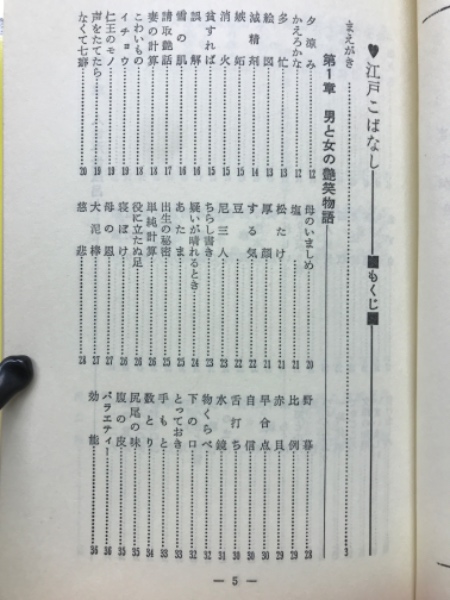 ♥江戸こばなし もくじ
まえがき 3
第1章 男と女の艶笑物語
夕涼み 12
かえろかな 12
多忙 13
絵図 13
減精剤 14
嫉妬 14
消火 15
貧すれば 15
誤解 16
雪の肌 16
請取艶話 17
妻の計算 18
こわいもの 18
イチョウ 18
仁王のモノ 19
声をたてたら 19
なくて七癖 20
母のいましめ 20
塩 21
松たけ 21
厚顔 21
する気 22
豆 22
尼三人 23
ちらし書き 23
疑いが晴れるとき 24
あたま 25
出生の秘密 25
単純計算 25
役に立たぬ足 26
寝ぼけ 26
母の恩 27
犬泥棒 27
慈悲 28
野暮 28
比例 29
赤貝 29
早合点 30
自信 30
舌打ち 30
水鏡 31
物くらべ 32
下の口 32
とっておき 33
手もと 33
数とり 34
尻尾の味 34
腹の皮 35
バラエティー 36
効能 36
— 5 —